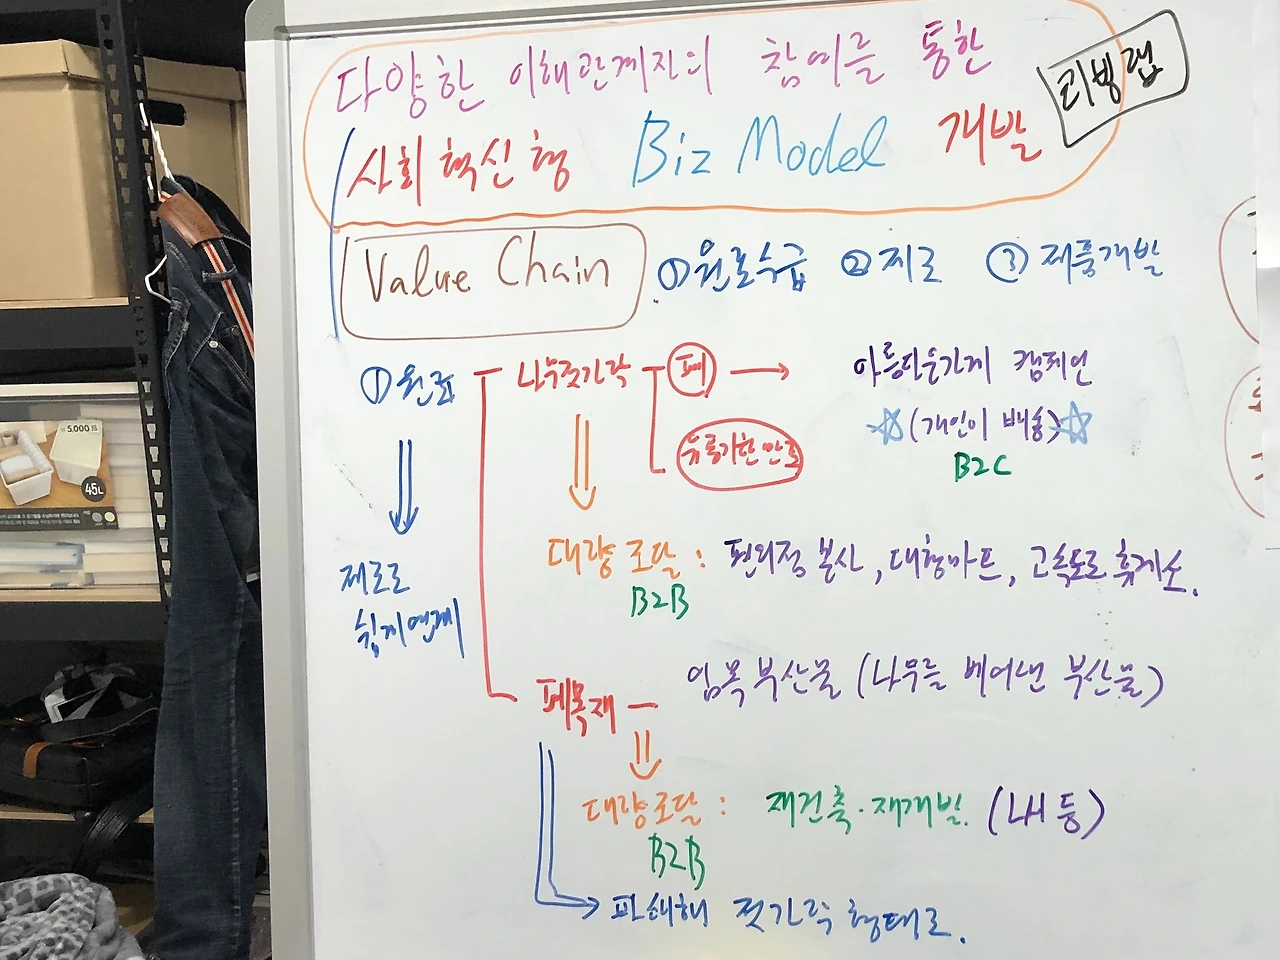 다양한 이해관계자의 참여를 통한
리빙랩
사회혁신형 Biz Model 개발
Value Chain ① 원료수급 ② 제조 ③ 제품개발
① 원료 나무젓가락 폐 → 아름다운가게 캠페인
유통기한 만료 ☆(개인이 배송)☆
B2C
제조로
쉽게 연계
대량 조달 : 편의점 본사, 대형마트, 고속도로 휴게소.
B2B
폐목재 임목 부산물 (나무를 베어낸 부산물)
대량조달 : 재건축·재개발. (LH 등)
B2B
파쇄해 젓가락 형태로.
5,000
45L